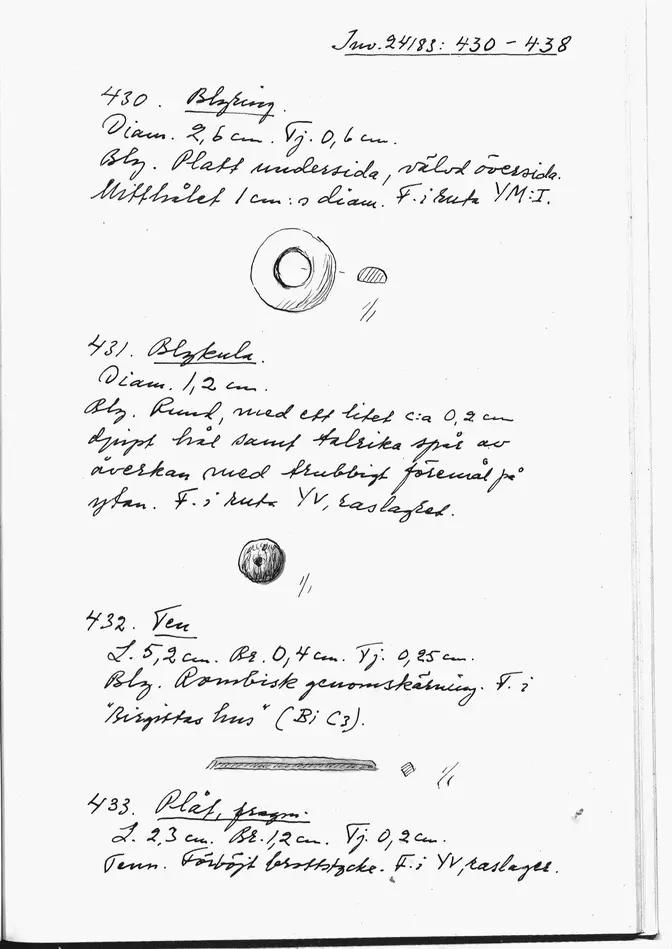 Inv. 24183: 430 - 438
430. Blyring.
Diam. 2,6 cm. Tj. 0,6 cm.
Bly. Platt undersida, välvd översida.
Mitthålet 1 cm:s diam. F. i ruta YM:I.
1/1
431. Blykula.
Diam. 1,2 cm.
Bly. Rund, med ett litet c:a 0,2 cm
djupt hål samt talrika spår av
åverkan med trubbigt föremål på
ytan. F. i ruta YV, raslagret.
1/1
432. Ten
L. 5,2 cm. Br. 0,4 cm. Tj. 0,25 cm.
Bly. Rombisk genomskärning. F. i
"Birgittas hus" (Bi C3).
1/1
433. Plåt, fragm.
L. 2,3 cm. Br. 1,2 cm. Tj. 0,2 cm.
Tenn. Förböjt brottstycke. F. i YV, raslager.